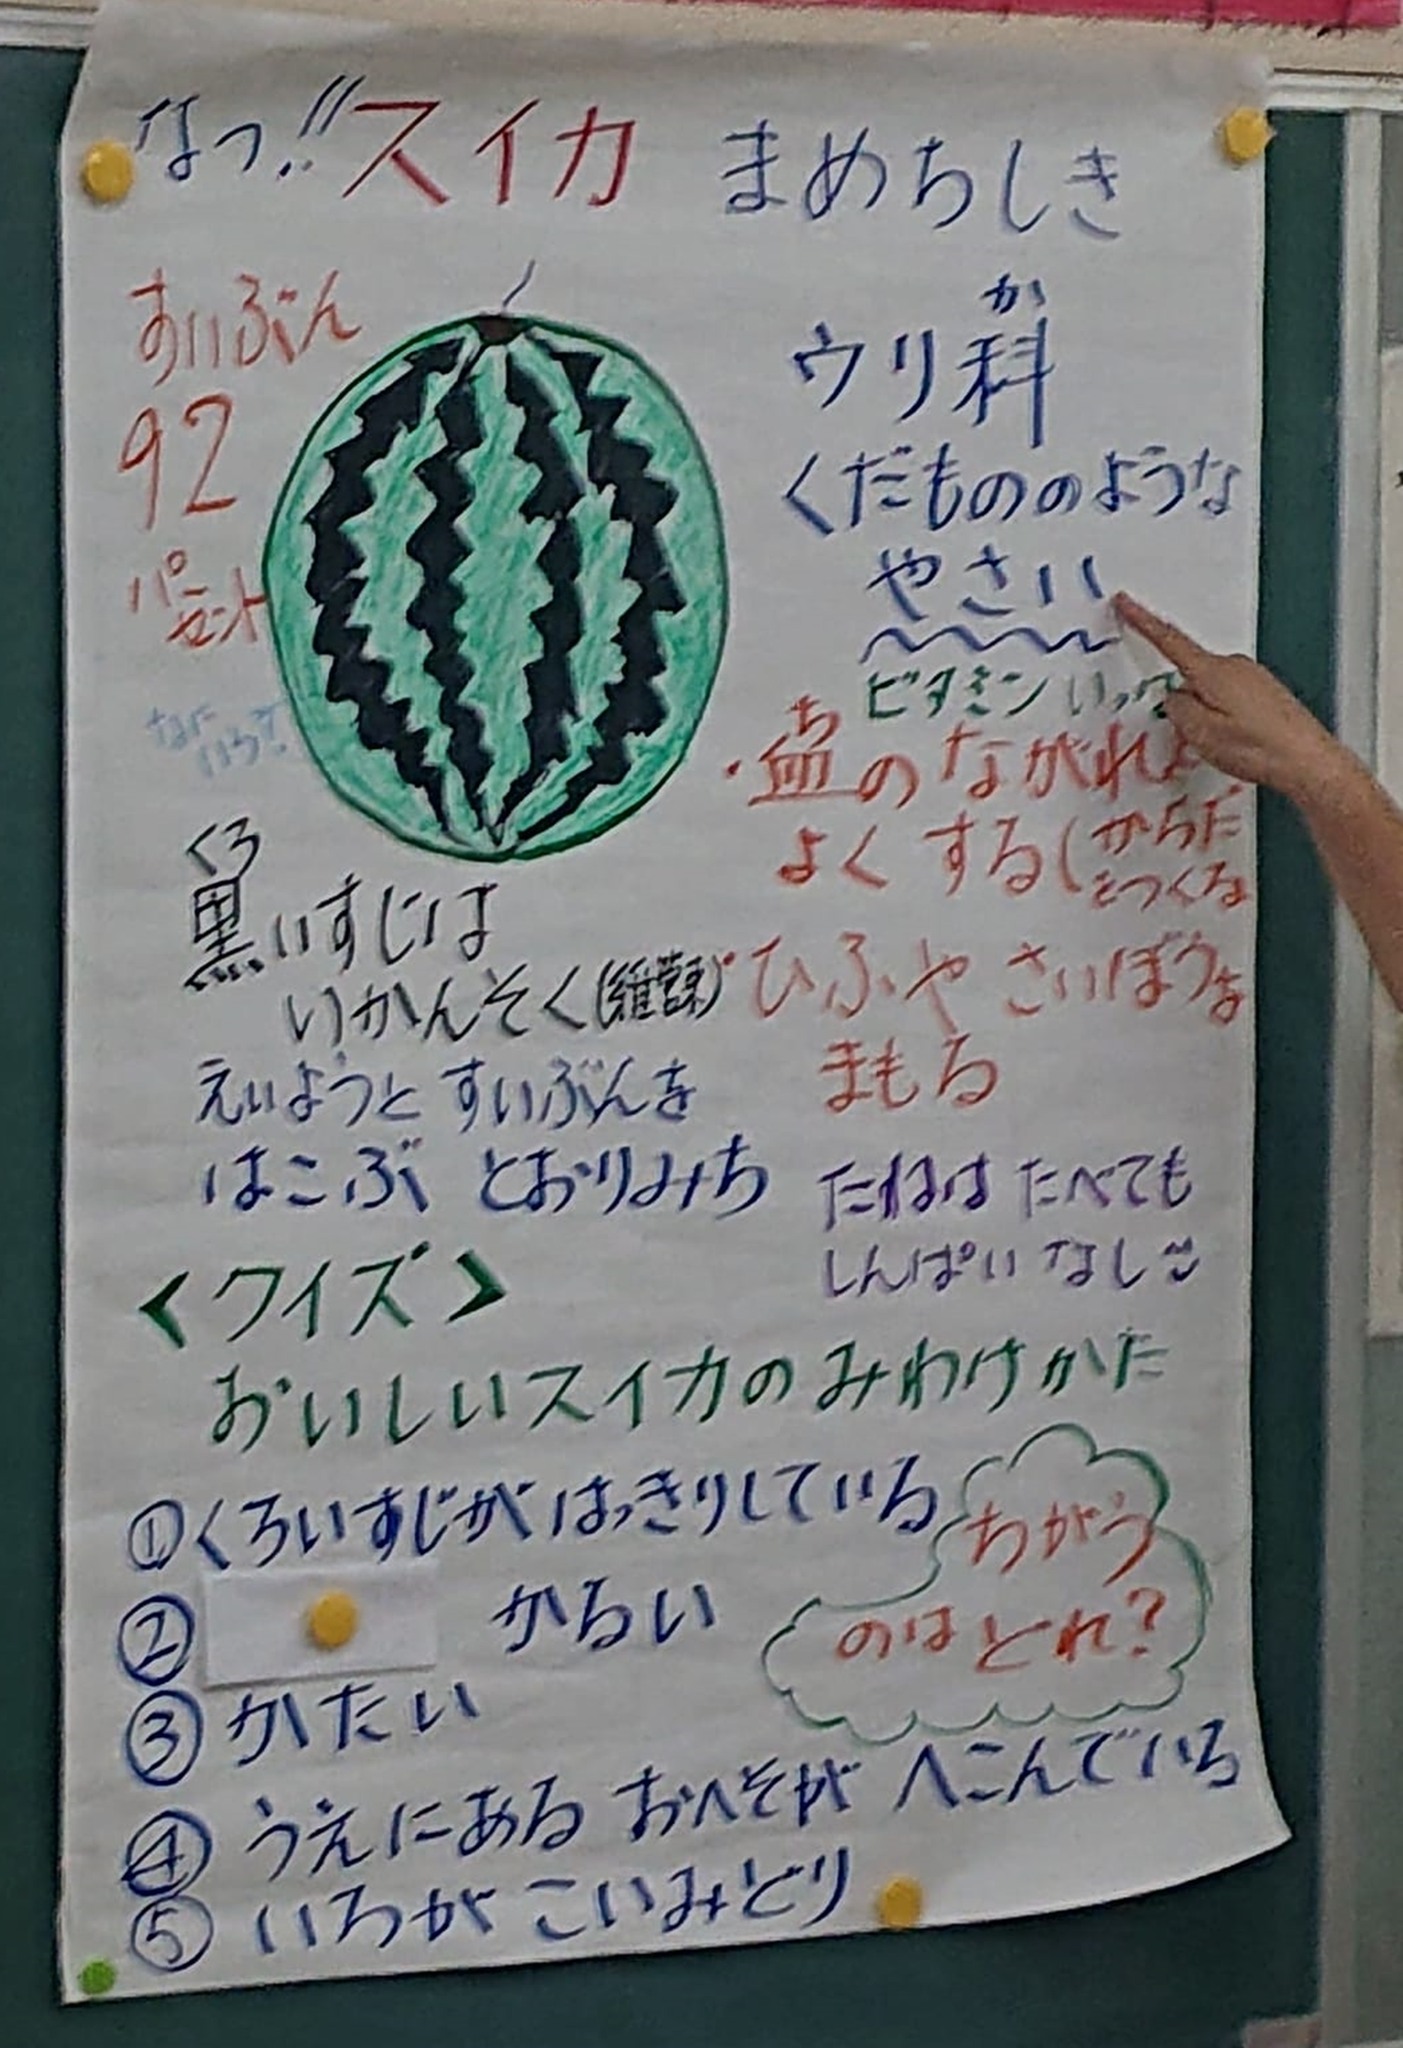 なつ!! スイカ まめちしき
すいぶん
92
パーセント
なに
いろ?
か
ウリ科
くだもののような
やさい
ビタミン いっ
ち
・血のながれ
よく する(からだ
をつくる
・ひふや さいぼうを
まもる
くろ
黒いすじは
いかんそく(維管束)
えいようと すいぶんを
はこぶ とおりみち
たねは たべても
しんぱい なし
<クイズ>
おいしいスイカのみわけかた
①くろいすじが はっきりしている
② かるい
③ かたい
④ うえにある おへそが へこんでいる
⑤ いろが こいみどり
ちがう
のはどれ?